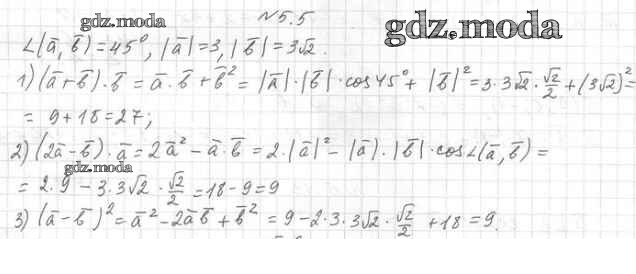 gdz.moda
№5.5
gdz.moda
∠(a̅, b̅) = 45°, |a̅| = 3, |b̅| = 3√2.
1) (a̅ + b̅) · b̅ = a̅ · b̅ + b̅² = |a̅| · |b̅| · cos 45° + |b̅|² = 3 · 3√2 · √2/2 + (3√2)² =
= 9 + 18 = 27;
2) (2a̅ − b̅) · a̅ = 2a̅² − a̅ · b̅ = 2 · |a̅|² − |a̅| · |b̅| · cos∠(a̅, b̅) =
gdz.moda
= 2 · 9 − 3 · 3√2 · √2/2 = 18 − 9 = 9
3) (a̅ − b̅)² = a̅² − 2a̅b̅ + b̅² = 9 − 2 · 3 · 3√2 · √2/2 + 18 = 9.